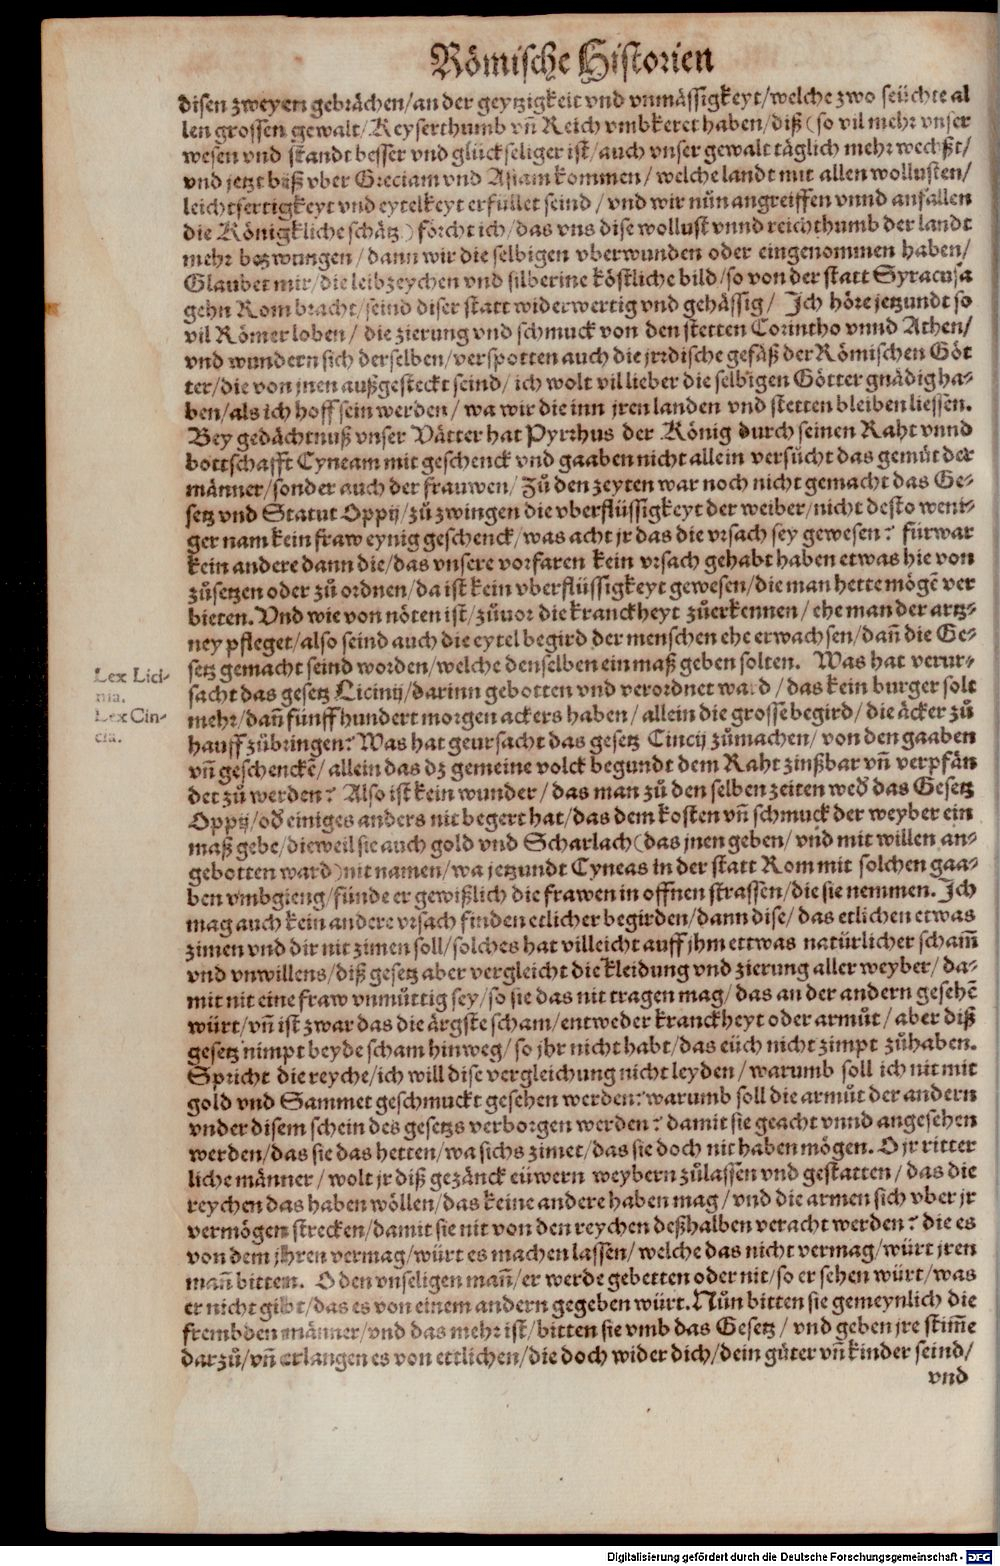 Römische Historien
disen zweyen gebrächen/an der geytzigkeit vnd vnmässigkeyt/welche zwo seüchte al
len grossen gewalt/Keyserthumb vñ Reich vmbkeret haben/diß (so vil mehr vnser
wesen vnd standt besser vnd glückseliger ist/auch vnser gewalt täglich mehr wechßt/
vnd jetzt biß vber Greciam vnd Asiam kommen/welche landt mit allen wollusten/
leichtfertigkeyt vnd eytelkeyt erfüllet seind/vnd wir nůn angreiffen vnnd anfallen
die Königkliche schätz) förcht ich/das vns dise wollust vnnd reichthumb der landt
mehr bezwungen/dann wir die selbigen vberwunden oder eingenommen haben/
Glaubet mir/die leibzeychen vnd silberine köstliche bild/so von der statt Syracusa
gehn Rom bracht/seind diser statt widerwertig vnd gehässig/ Ich höre jetzundt so
vil Römer loben/die zierung vnd schmuck von den stetten Corintho vnnd Athen/
vnd wundern sich derselben/verspotten auch die jrdische gefäß der Römischen Göt
ter/die von jnen außgesteckt seind/ich wolt vil lieber die selbigen Götter gnädig ha-
ben/als ich hoff sein werden/wa wir die inn jren landen vnd stetten bleiben liessen.
Bey gedächtnuß vnser Vätter hat Pyrrhus der König durch seinen Raht vnnd
bottschafft Cyneam mit geschenck vnd gaaben nicht allein versůcht das gemüt der
männer/sonder auch der frauwen/Zů den zeyten war noch nicht gemacht das Ge-
setz vnd Statut Oppij/zů zwingen die vberflüssigkeyt der weiber/nicht desto weni-
ger nam kein fraw eynig geschenck/was acht jr das die vrsach sey gewesen? fürwar
kein andere dann die/das vnsere vorfaren kein vrsach gehabt haben etwas hie von
zůsetzen oder zů ordnen/da ist kein vberflüssigkeyt gewesen/die man hette mögē ver
bieten. Vnd wie von nöten ist/zůuor die kranckheyt zůerkennen/ehe man der artz-
ney pfleget/also seind auch die eytel begird der menschen ehe erwachsen/dañ die Ge-
setz gemacht seind worden/welche denselben ein maß geben solten. Was hat verur-
Lex Lici-
nia.
sacht das gesetz Licinij/darinn gebotten vnd verordnet ward/das kein burger solt
Lex Cin-
cia.
mehr/dañ fünffhundert morgen ackers haben/allein die grosse begird/die äcker zů
hauff zübringen? Was hat geursacht das gesetz Cincij zůmachen/von den gaaben
vñ geschenckē/allein das dz gemeine volck begundt dem Raht zinßbar vñ verpfän
det zů werden? Also ist kein wunder/das man zů den selben zeiten wed das Gesetz
Oppij/od einiges anders nit begert hat/das dem kosten vñ schmuck der weyber ein
maß gebe/dieweil sie auch gold vnd Scharlach (das jnen geben/vnd mit willen an-
gebotten ward) nit namen/wa jetzundt Cyneas in der statt Rom mit solchen gaa-
ben vmbgieng/fünde er gewißlich die frawen in offnen strassen/die sie nemmen. Ich
mag auch kein andere vrsach finden etlicher begirden/dann dise/das etlichen etwas
zimen vnd dir nit zimen soll/solches hat villeicht auff jhm ettwas natürlicher scham̄
vnd vnwillens/diß gesetz aber vergleicht die kleidung vnd zierung aller weyber/da-
mit nit eine fraw vnmůttig sey/so sie das nit tragen mag/das an der andern gesehē
würt/vñ ist zwar das die ärgste scham/entweder kranckheyt oder armůt/aber diß
gesetz nimpt beyde scham hinweg/so jhr nicht habt/das eüch nicht zimpt zůhaben.
Spricht die reyche/ich will dise vergleichung nicht leyden/warumb soll ich nit mit
gold vnd Sammet geschmuckt gesehen werden? warumb soll die armůt der andern
vnder disem schein des gesetzs verborgen werden? damit sie geacht vnnd angesehen
werden/das sie das hetten/wa sichs zimet/das sie doch nit haben mögen. O jr ritter
liche männer/wolt jr diß gezänck eüwern weybern zůlassen vnd gestatten/das die
reychen das haben wöllen/das keine andere haben mag/vnd die armen sich vber jr
vermögen strecken/damit sie nit von den reychen deßhalben veracht werden? die es
von dem jhren vermag/würt es machen lassen/welche das nicht vermag/würt jren
mañ bitten. O den vnseligen mañ/er werde gebetten oder nit/so er sehen würt/was
er nicht gibt/das es von einem andern gegeben würt. Nůn bitten sie gemeynlich die
frembden männer/vnd das mehr ist/bitten sie vmb das Gesetz/vnd geben jre stim̄e
darzů/vñ erlangen es von ettlichen/die doch wider dich/dein güter vñ kinder seind/
vnd
Digitalisierung gefördert durch die Deutsche Forschungsgemeinschaft - DFG